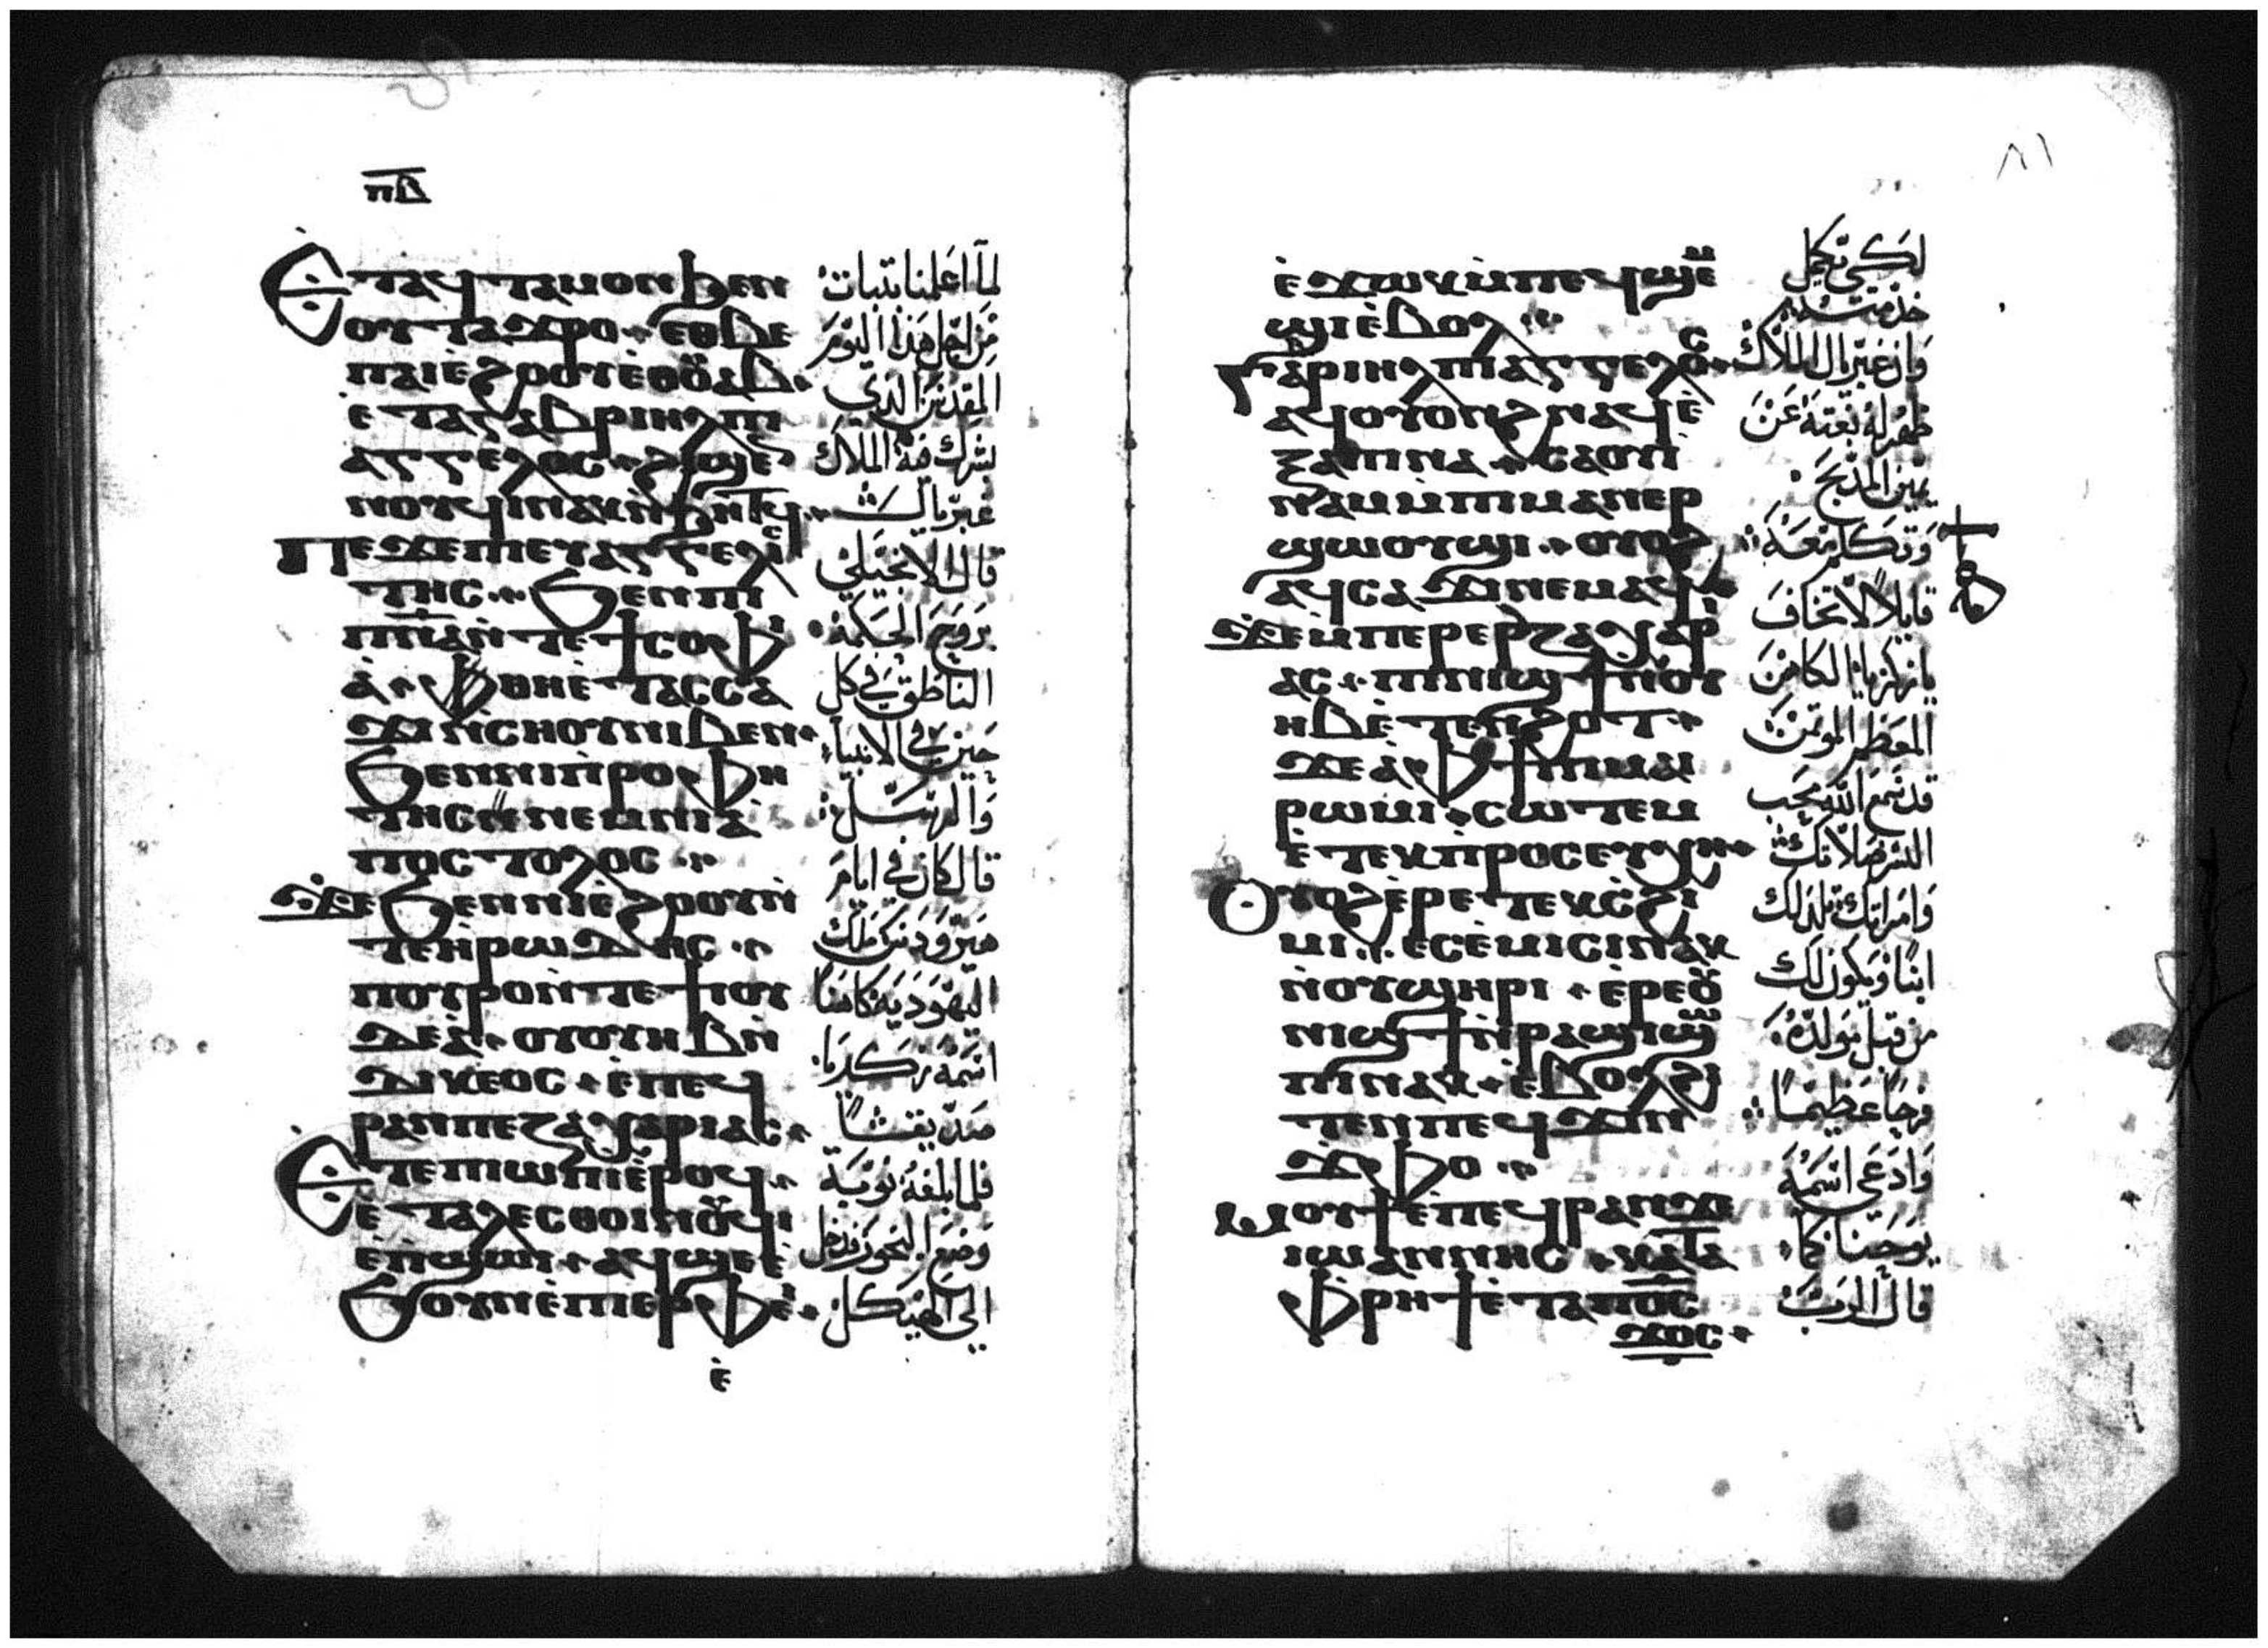 ⲡⲃ
Ⲉ̇ⲧⲁϥⲧⲁⲙⲟⲛ ϧⲉⲛ
ⲟⲩⲧⲁϫⲣⲟ · ⲉⲑⲃⲉ
ⲡⲁⲓⲉ̀ϩⲟⲟⲩ ⲉⲑⲟⲩⲁⲃ ·
ⲉ̀ⲧⲁⲅⲁⲃⲣⲓⲏⲗ ⲡⲓ
ⲁⲅⲅⲉⲗⲟⲥ · ϩⲓϣⲉ
ⲛⲟⲩϥⲓ ⲛ̀ϧⲏⲧϥ ·
Ⲡⲉϫⲉ ⲡⲓⲉⲩⲁⲅⲅⲉⲗⲓ
ⲧⲏⲥ · Ϧⲉⲛ ⲡⲓ
ⲡⲛⲁ ⲛ̀ⲧⲉ ϯⲥⲟⲫⲓ
ⲁ̀ · ⲫⲏⲉ̀ⲧⲁⲥⲥⲁ
ϫⲓ ⲛ̀ⲥⲏⲟⲩ ⲛⲓⲃⲉⲛ ·
Ϧⲉⲛ ⲛⲓⲡ̀ⲣⲟⲫⲏ
ⲧⲏⲥ ⲛⲉⲙ ⲛⲓⲁ̀
ⲡⲟⲥⲧⲟⲗⲟⲥ ·
ϫⲉ Ϧⲉⲛ ⲛⲓⲉ̀ϩⲟⲟⲩ ⲛ̀
ⲧⲉ ⲏⲣⲱⲇⲏⲥ ·
ⲡⲟⲩⲣⲟ ⲛ̀ⲧⲉ ϯⲓⲟⲩ
ⲇⲉⲁ̀ · ⲟⲩⲟⲩⲏⲃ ⲛ̀
ⲇⲓⲕⲉⲟⲥ · ⲉ̀ⲡⲉϥ
ⲣⲁⲛ ⲡⲉ ⲍⲁⲭⲁⲣⲓⲁⲥ ·
Ⲉ̇ⲧⲉⲡⲓⲱⲡ ⲉ̀ⲣⲟϥ ·
ⲉ̀ⲧⲁⲗⲉ ⲥⲑⲟⲓⲛⲟⲩϥⲓ
ⲉ̀ⲡ̀ϣⲱⲓ · ⲁϥϣⲉ ⲉ̀
Ϧⲟⲩⲛ ⲉ̀ⲡⲓⲉⲣⲫⲉⲓ ·
ⲉ̀
لما اعلمنا بتبات
من اجل هذا اليوم
المقدس الدي
بشر فيه الملاك
غبريال
قال الانجيلي
بروح الحكمة
الناطق في كل
حين في الانبيا
والرسل
قال كان في ايام
هيرودس ملك
اليهودية كاهنا
اسمه زكريا
صديقا
فلما بلغة نوبة
وضع البخور فدخل
الي الهيكل
٨١
ⲉ̀ϫⲱⲕ ⲙ̀ⲡⲉϥϣⲉⲙ
ϣⲓ ⲉ̀ⲃⲟⲗ ·
Ⲅⲁⲃⲣⲓⲏⲗ ⲡⲓⲁⲅⲅⲉⲗⲟⲥ ·
ⲁϥⲟⲩⲟⲛϩ ⲛⲁϥ ⲉ̀
ⲝⲁⲡⲓⲛⲁ · ⲥⲁⲟⲩⲓ
ⲛⲁⲙ ⲙ̀ⲡⲓⲙⲁⲛⲉⲣ
ϣⲱⲟⲩϣⲓ · ⲟⲩⲟϩ
ⲁϥⲥⲁϫⲓ ⲛⲉⲙⲁϥ ·
ϫⲉ ⲙ̀ⲡⲉⲣⲉⲣϩⲟϯ ⲍⲁⲭⲁⲣⲓ
ⲁⲥ · ⲡⲓⲛⲓϣϯ ⲛ̀ⲟⲩ
ⲏⲃ ⲉ̀ⲧⲉⲛϩⲟⲧ ·
ϫⲉ ⲁ̀ⲫϯ ⲡⲓⲙⲁⲓ
ⲣⲱⲙⲓ · ⲥⲱⲧⲉⲙ
ⲉ̀ⲧⲉⲕⲡ̀ⲣⲟⲥⲉⲩⲭⲏ ·
Ⲟⲩⲟϩ ⲉ̀ⲣⲉ ⲧⲉⲕⲥ̀ϩⲓ
ⲙⲓ · ⲉⲥⲉ̀ⲙⲓⲥⲓ ⲛⲁⲕ
ⲛ̀ⲟⲩϣⲏⲣⲓ · ⲉ̀ⲣⲉ ⲟⲩ
ⲛⲓϣϯ ⲛ̀ⲣⲁϣⲓ ϣⲱ
ⲡⲓ ⲛⲁⲕ · ⲉ̀ⲃⲟⲗ ϩⲓ
ⲧⲉⲛ ⲡⲉϥϫⲓⲛ
ϫ̀ⲫⲟ ·
ⲙⲟⲩϯ ⲉ̀ⲡⲉϥⲣⲁⲛ ϫⲉ
ⲓⲱⲁⲛⲛⲏⲥ · ⲕⲁⲧⲁ
ⲫⲣⲏϯ ⲉ̀ⲧⲁ ⲡⲟⲥ
ϫⲟⲥ ·
لكي تكمل
خدمته
وان غبريال الملاك
ظهر له بغتة عن
يمين المدبح
وتكلم معه
قايلا لا تخاف
يا زكريا الكاهن
المعظم الموتمن
قد سمع الله محب
البشر صلاتك
وامراتك تلد لك
ابنا ويكون لك
من قبل مولده
فرحا عظيما
وادعي اسمه
يوحنا كما
قال الرب